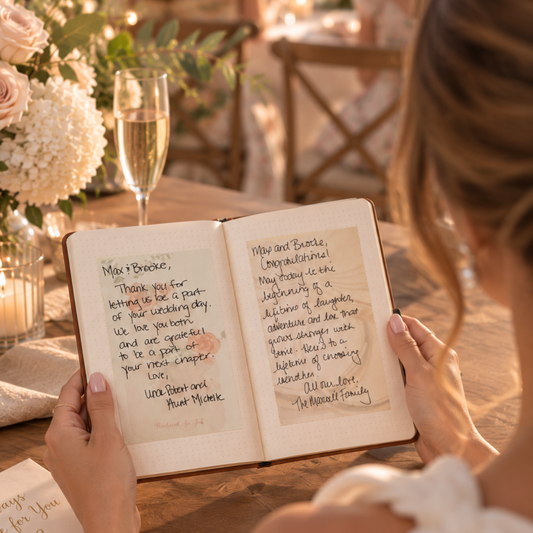 Max & Brooke,
Thank you for
letting us be a part
of your wedding day.
We love you both
and are grateful
to be a part of
your next chapter.
Love,
Uncle Robert and
Aunt Michelle
Max and Brooke,
Congratulations!
May today be the
beginning of a
lifetime of laughter,
adventure and love that
grows stronger with
time. Here's to a
lifetime of choosing
each other.
All our love,
The Maxwell Family
for You